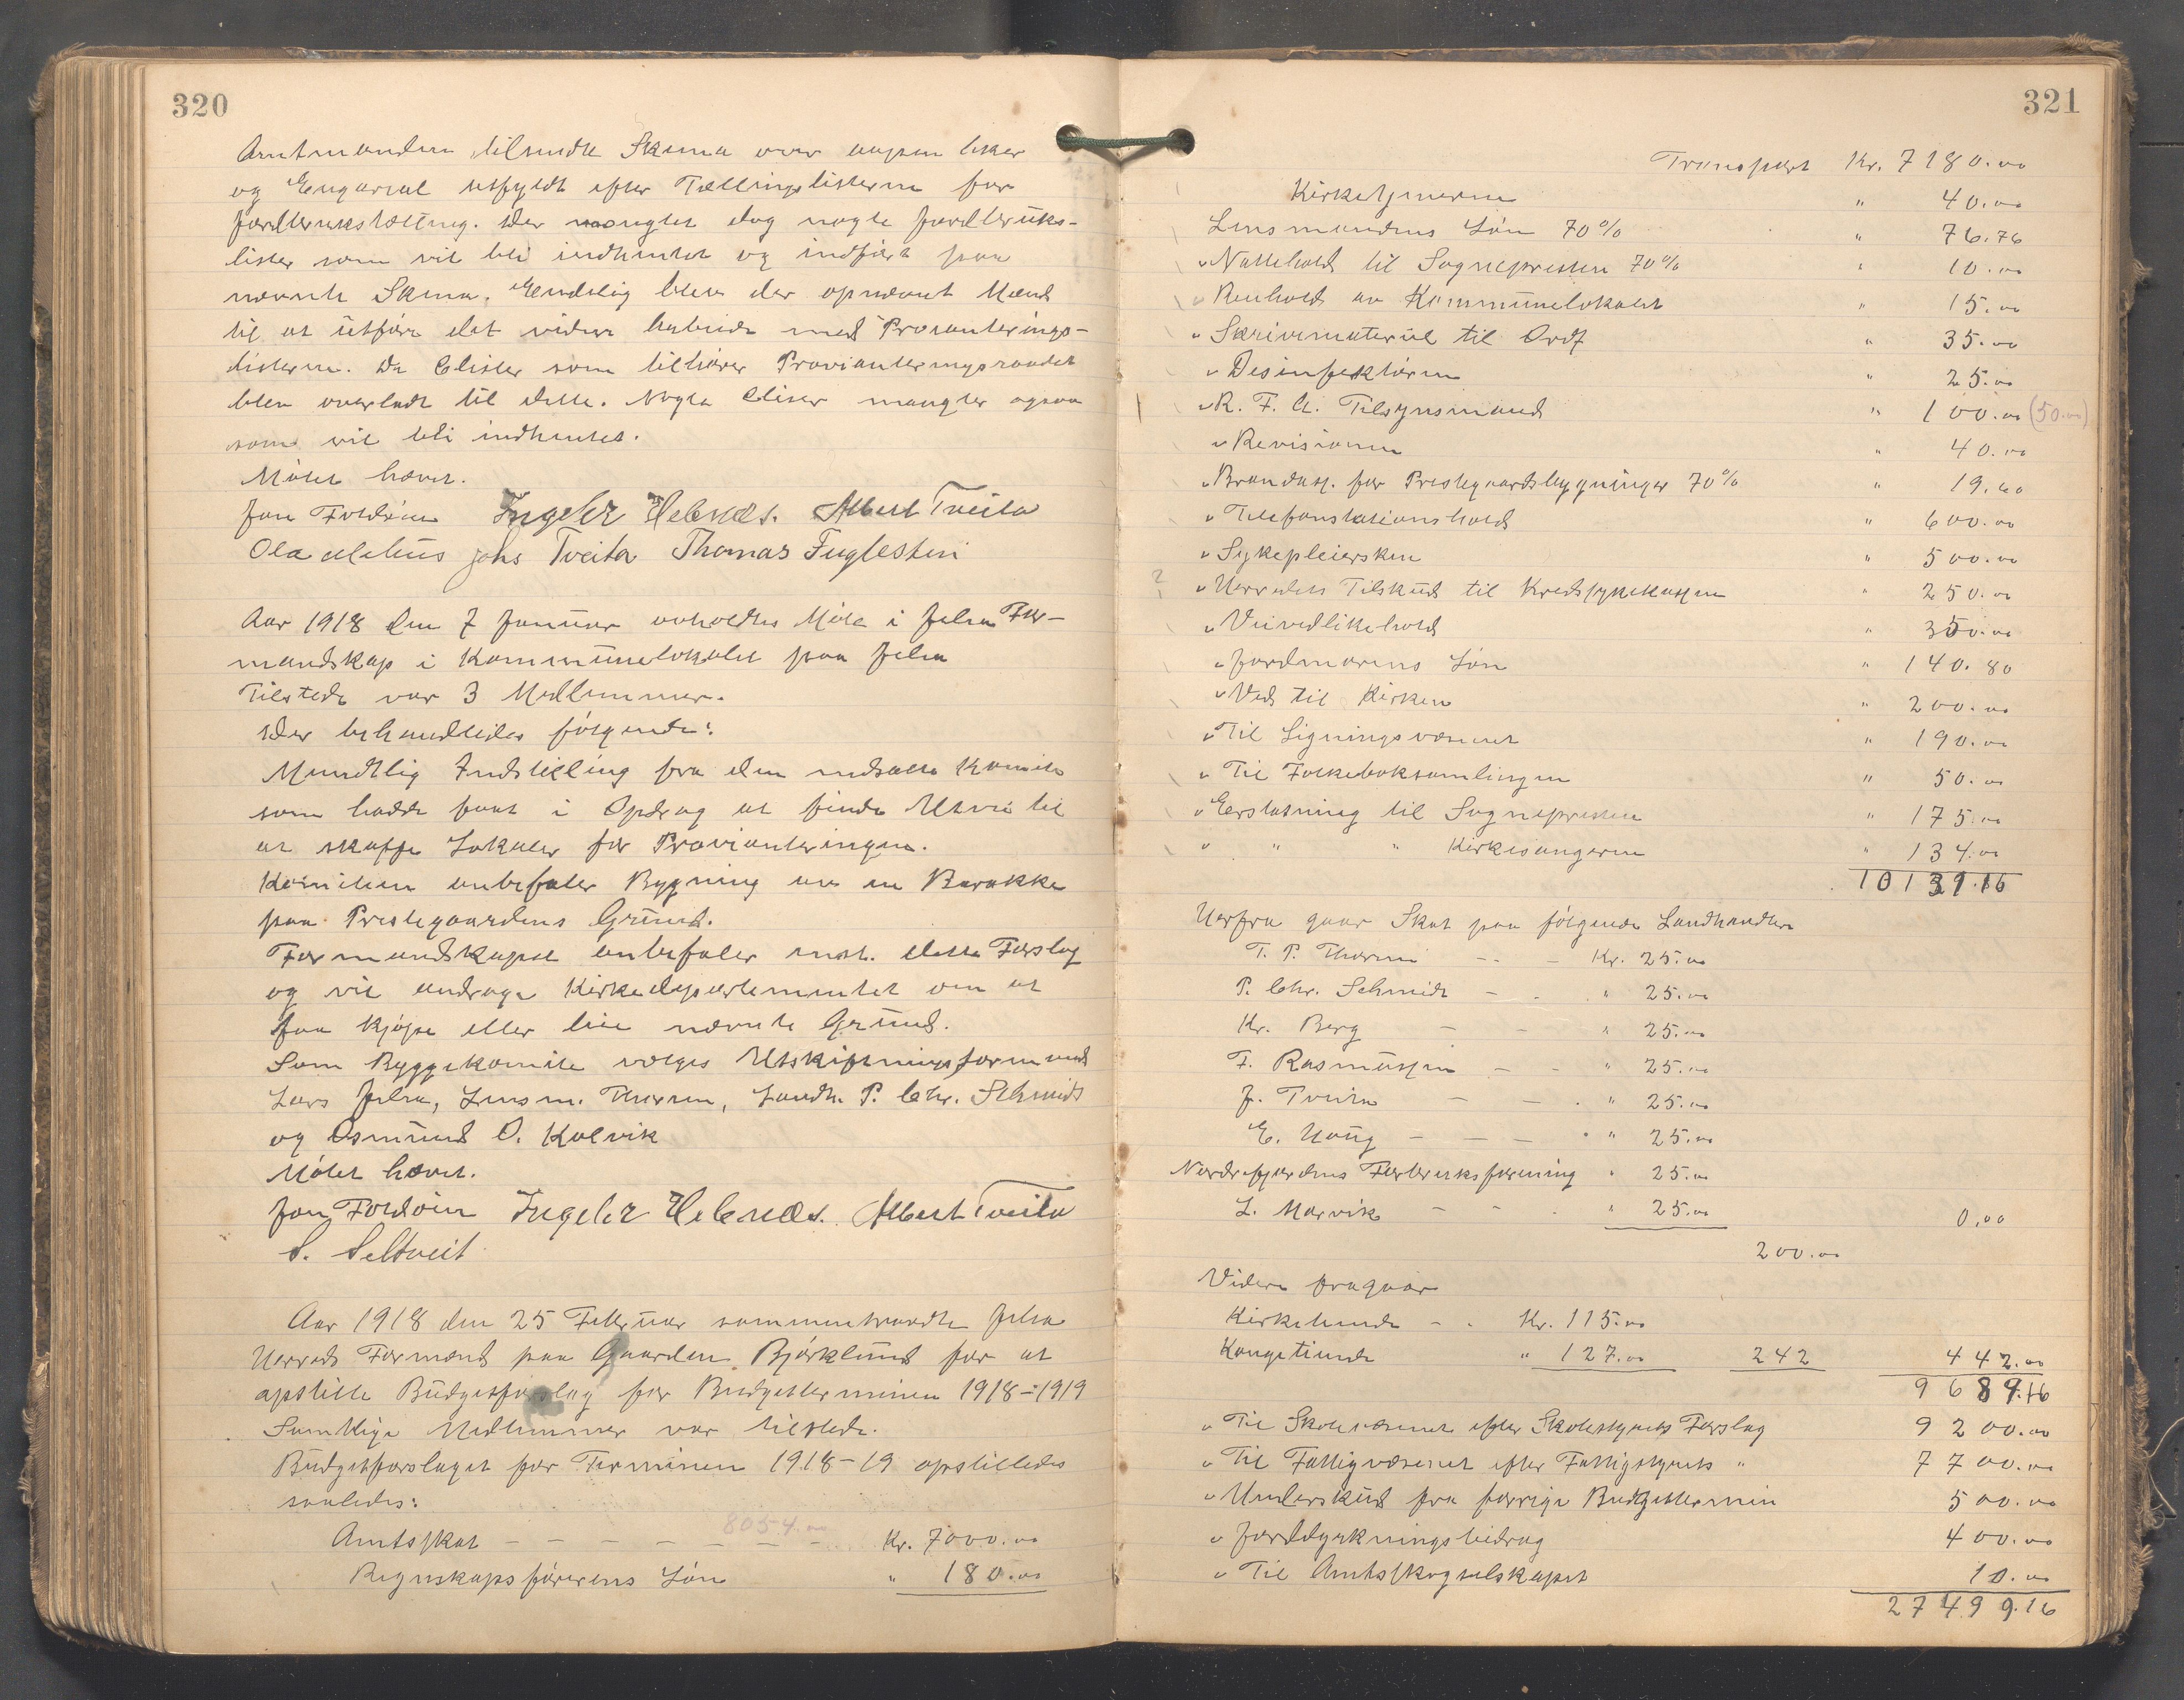 320
Amtmanden tilsendte Skema over aapen Aker
og Engareal utfyldt efter Tællingslisterne for
jordbrukstælling. Der mangler dog nogle jordbruks-
lister som vil bli indhentet og indført paa
nævnte Skema. Endelig blev der opnævnt Mænd
til at utføre det videre Arbeide med Provianterings-
listerne. De Clister som tilhører Provianteringsraadet
blev overladt til dette. Nogle Clister mangler ogsaa
som vil bli indhentet.
Møtet hævet.
Jon Foldøen Ingebr Hebnes. Albert Tveita
Ola Mehus Johs Tveita Thomas Fuglestein
Aar 1918 den 7 Januar avholdtes Møte i Jelsa For-
mandskap i Kommunelokalet paa Jelsa
Tilstede var 3 Medlemmer.
Der behandledes følgende:
Mundtlig Indstilling fra den nedsatte Komite
som hadde faat i Opdrag at finde Utvei til
at skaffe Lokaler for Provianteringen.
Komiteen anbefaler Bygning av en Barakke
paa Prestegaardens Grund.
Formandskapet anbefaler enst. dette Forslag
og vil andrage Kirkedepartementet om at
faa kjøpe eller leie nævnte Grund.
Som Byggekomite vælges Utskiftningsformand
Lars Jelsa, Lensm. Thorsen, Landh. P. Chr. Schmidt
og Osmund O. Kolvik
Møtet hævet.
Jon Foldøen Ingebr Hebnes. Albert Tveita
S. Seltveit
Aar 1918 den 25 Februar sammentraadte Jelsa
Herreds Formænd paa Gaarden Bjørklund for at
opstille Budgetforslag for Budgetterminen 1918-1919
Samtlige Medlemmer var tilstede.
Budgetforslaget for Terminen 1918-19 opstilledes
saaledes:
8054.00
Amtsskat - - - - - - - Kr. 7000.00
Regnskapsførerens Løn " 180.00
321
Transport Kr. 7180.00
Kirketjenerne " 40.00
Lensmandens Løn 70% " 76.76
" Nattehold til Sognepresten 70% " 10.00
" Renhold av Kommunelokalet " 15.00
" Skrivemateriel til Ordf " 35.00
" Desinfektøren " 25.00
" R. F. A. Tilsynsmand " 100.00 (50.00)
" Revisionen " 40.00
" Brandass. for Prestegaardsbygninger 70% " 19.60
" Telefonstationshold " 600.00
" Sykepleiersken " 500.00
? " Herredets Tilskud til Kredssykekassen " 250.00
" Veivedlikehold " 350.00
" Jordmorens Løn " 140.80
" Ved til Kirken " 200.00
" Til Ligningsvæsenet " 190.00
" Til Folkeboksamlingen " 50.00
" Erstatning til Sognepresten " 175.00
" " " Kirkesangeren " 134.00
10131.16
Herfra gaar Skat paa følgende Landhandlere
T. P. Thorsen - - - Kr. 25.00
P. Chr. Schmidt - - " 25.00
Kr. Berg - - " 25.00
F. Rasmussen - - " 25.00
J. Tveita - - " 25.00
E. Haug - - - " 25.00
Nordrefjordens Forbruksforening " 25.00
L. Marvik - - " 25.00 0,00
200.00
Videre fragaar
Kirketiende - - Kr. 115.00
Kongetiende " 127.00 242 442.00
9689.16
" Til Skolevæsenet efter Skolestyrets Forslag 9200.00
" Til Fattigvæsenet efter Fattigstyrets " 7700.00
" Underskud fra forrige Budgettermin 500.00
" Jorddyrkningsbidrag 400.00
" Til Amtsskogselskapet 10.00
27499.16